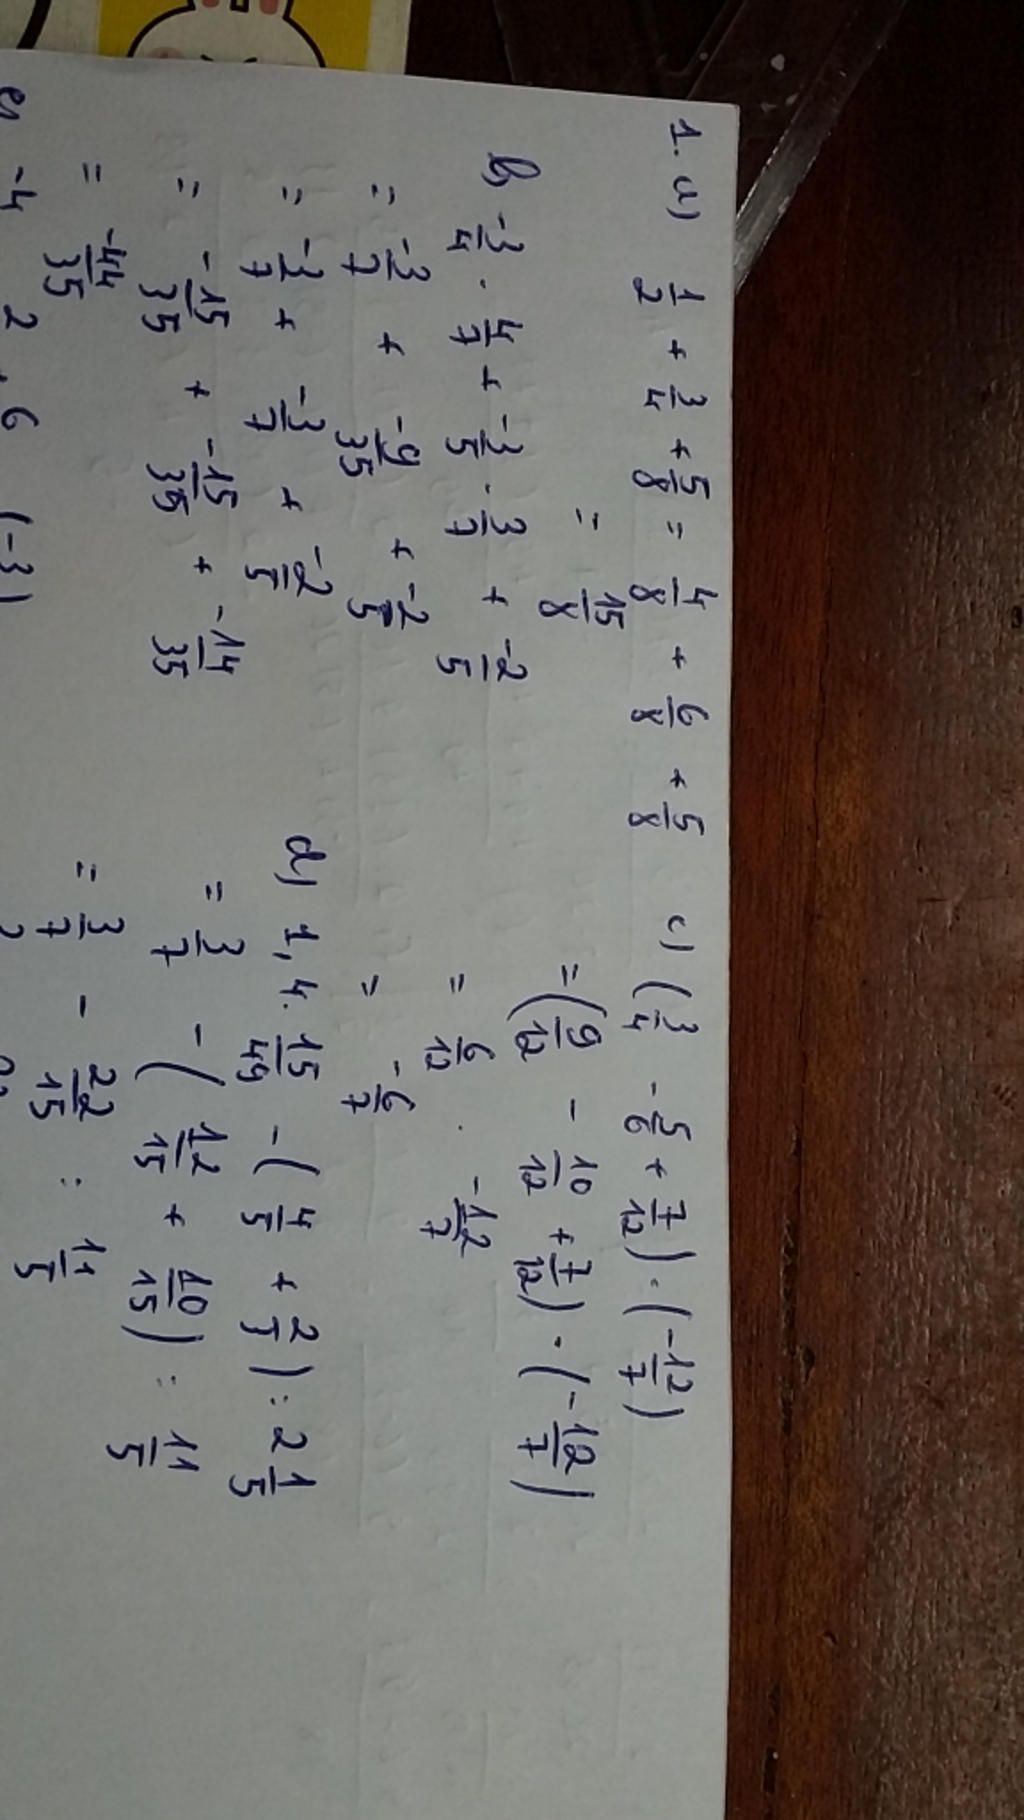 1. a) 1/2 + 3/4 + 5/8 = 4/8 + 6/8 + 5/8
= 15/8
b) -3/4 . 4/7 + -3/5 . 3/7 + -2/5
= -3/7 + -9/35 + -2/5
= -3/7 + -3/7 + -2/5
= -15/35 + -15/35 + -14/35
= -44/35
e) -4 2 . 6 (-3)
c) (3/4 - 5/6 + 7/12) . (-12/7)
= (9/12 - 10/12 + 7/12) . (-12/7)
= 6/12 . -12/7
= -6/7
d) 1,4 . 15/49 - (4/5 + 2/3) : 2 1/5
= 3/7 - (12/15 + 10/15) : 11/5
= 3/7 - 22/15 : 11/5